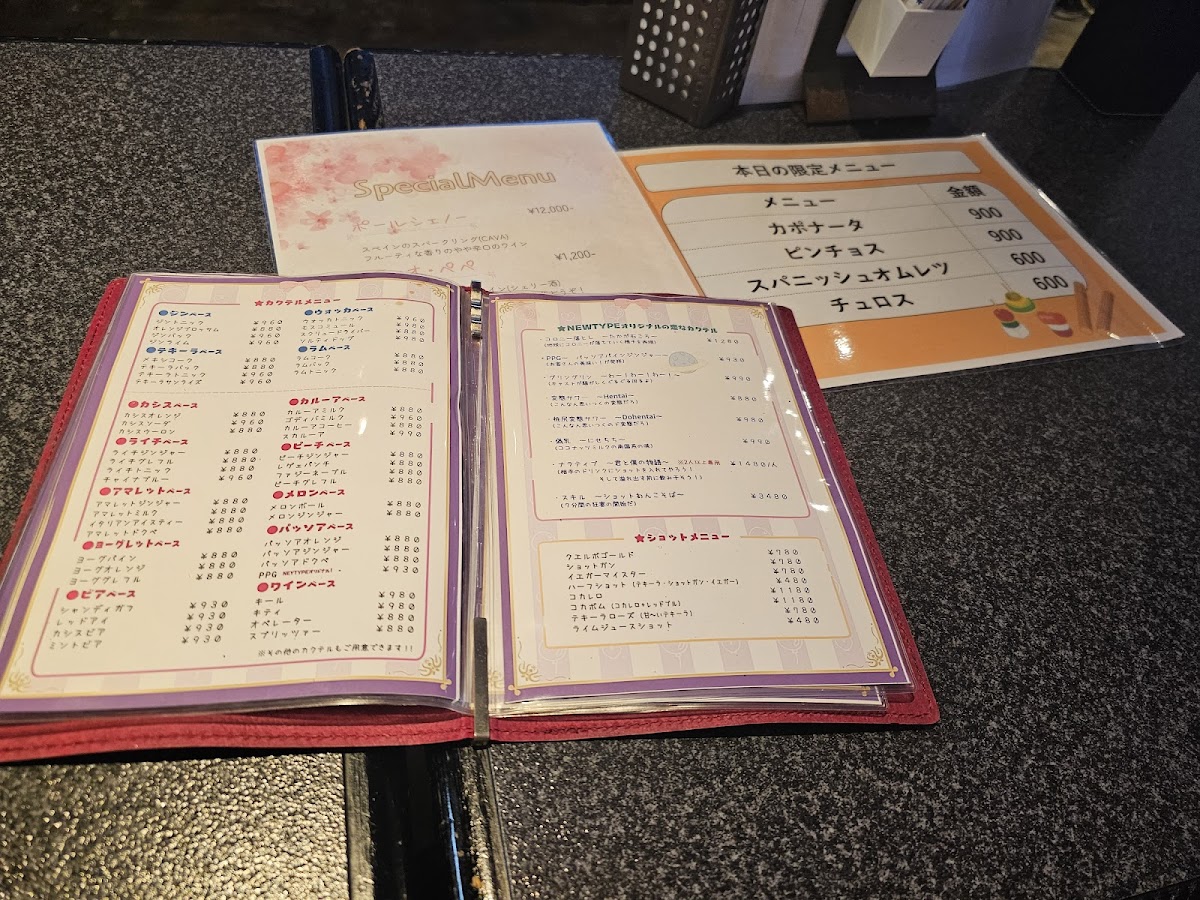 SpecialMenu
ポールシェノー ¥12,000-
スペインのスパークリング(CAVA)
フルーティな香りのやや辛口のワイン
¥1,200-
イン(シェリー酒)
本日の限定メニュー
メニュー 金額
カポナータ 900
ピンチョス 900
スパニッシュオムレツ 600
チュロス 600
★カクテルメニュー
●ジンベース
ジントニック ¥960
オレンジブロッサム ¥880
ジンバック ¥960
ジンライム ¥960
●テキーラベース
メキシコーク ¥880
テキーラバック ¥880
テキーラトニック ¥960
テキーラサンライズ ¥960
●ウォッカベース
ウォッカトニック ¥960
モスコミュール
スクリュードライバー
ソルティドッグ
●ラムベース
ラムコーク ¥880
ラムバック ¥880
ラムトニック
●カシスベース
カシスオレンジ ¥880
カシスソーダ ¥960
カシスウーロン ¥880
●ライチベース
ライチジンジャー ¥880
ライチグレフル ¥880
ライチトニック ¥880
チャイナブルー ¥960
●アマレットベース
アマレットジンジャー ¥880
アマレットミルク ¥880
イタリアンアイスティー ¥880
アマレットドクペ ¥880
●ヨーグレットベース
ヨーグパイン ¥880
ヨーグオレンジ ¥880
ヨーググレフル ¥880
●ビアベース
シャンディガフ ¥930
レッドアイ ¥930
カシスビア ¥930
ミントビア ¥930
●カルーアベース
カルーアミルク ¥880
ゴディバミルク ¥960
カルーアコーヒー ¥880
スカルーア ¥990
●ピーチベース
ピーチジンジャー ¥880
レゲェパンチ ¥880
ファジーネーブル ¥880
ピーチグレフル ¥880
●メロンベース
メロンボール ¥880
メロンジンジャー ¥880
●パッソアベース
パッソアオレンジ ¥880
パッソアジンジャー ¥880
パッソアドクペ ¥880
PPG NEWTYPEオリジナル! ¥930
●ワインベース
キール ¥980
キティ ¥980
オペレーター ¥880
スプリッツァー ¥880
※その他のカクテルもご用意できます!!
★NEWTYPEオリジナルの恋なカクテル
・コロニー落としょーたか がるころ～ ¥1280
・PPG～ パッソアパインジンジャー～ ¥930
・グリングリン ～わー!わー!わー!～ ¥990
・変態サワー ～Hentai～ ¥880
(こんな人思いっくので変態だろ)
・極尻変態サワー ～Dohentai～ ¥980
・偽乳 ～にせちち～ ¥990
(ココナッツミルクの南国系の味)
・ナラティブ ～君と僕の物語～ ※2人以上専用 ¥1480/人
(相手のドリンクにショットを入れてやろう!
そして溢れ出す前に飲み干そう!)
・スキル ～ショットわんこそば～ ¥3480
(7分間の狂宴の開始だ)
★ショットメニュー
クエルボゴールド ¥780
ショットガン ¥780
イエガーマイスター ¥780
ハーフショット (テキーラ・ショットガン・イエガー) ¥480
コカレロ ¥1180
コカボム (コカレロ+レッドブル) ¥1180
テキーラローズ (甘～いテキーラ) ¥780
ライムジュースショット ¥480